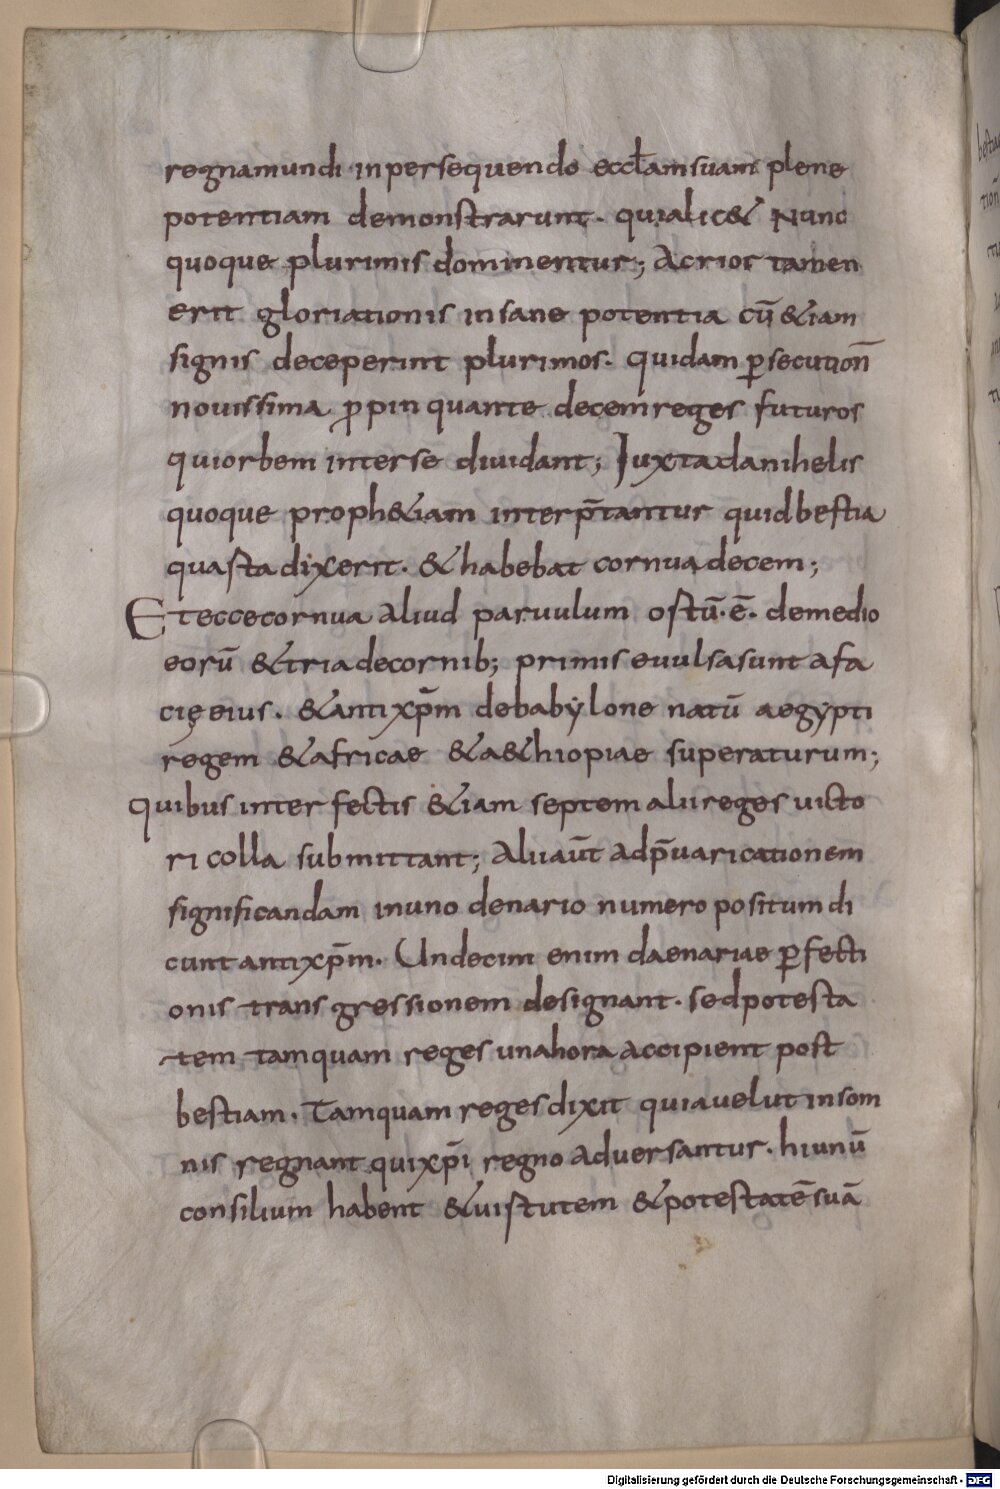 regnamundi inpersequendo eccl̄amsuam plene
potentiam demonstrarunt. quialic& Nunc
quoque plurimis dominentur; Acrior tamen
erit gloriationis insane potentia cū &iam
signis deceperint plurimos. quidam p̱secution̄
nouissima p̱pinquante decemreges futuros
quiorbem interse diuidant; Iuxtadanihelis
quoque proph&iam interp̄tantur quidbestia
quastadixerit. & habebat cornuadecem;
Eteccecornua aliud paruulum ostū. ē. demedio
eorū &triadecornib; primiseuulsasunt afa
cięeius. &antixp̄m debabẏlone natū aegypti
regem &africae &a&hiopiae superaturum;
quibus interfectis &iam septem aliireges uicto
ri colla submittant; Aliiaūt adp̄uaricationem
significandam inuno denario numero positum di
cunt antixp̄m. Undecim enim daenariae p̱fecti
onis transgressionem designant. sedpotesta
tem tamquam reges unahora accipient post
bestiam. Tamquam regesdixit quiauelut insom
nis regnant quixp̄i regno aduersantur. hiunū
consilium habent &uistutem &potestatēsuā
beſtia
Digitalisierung gefördert durch die Deutsche Forschungsgemeinschaft - DFG